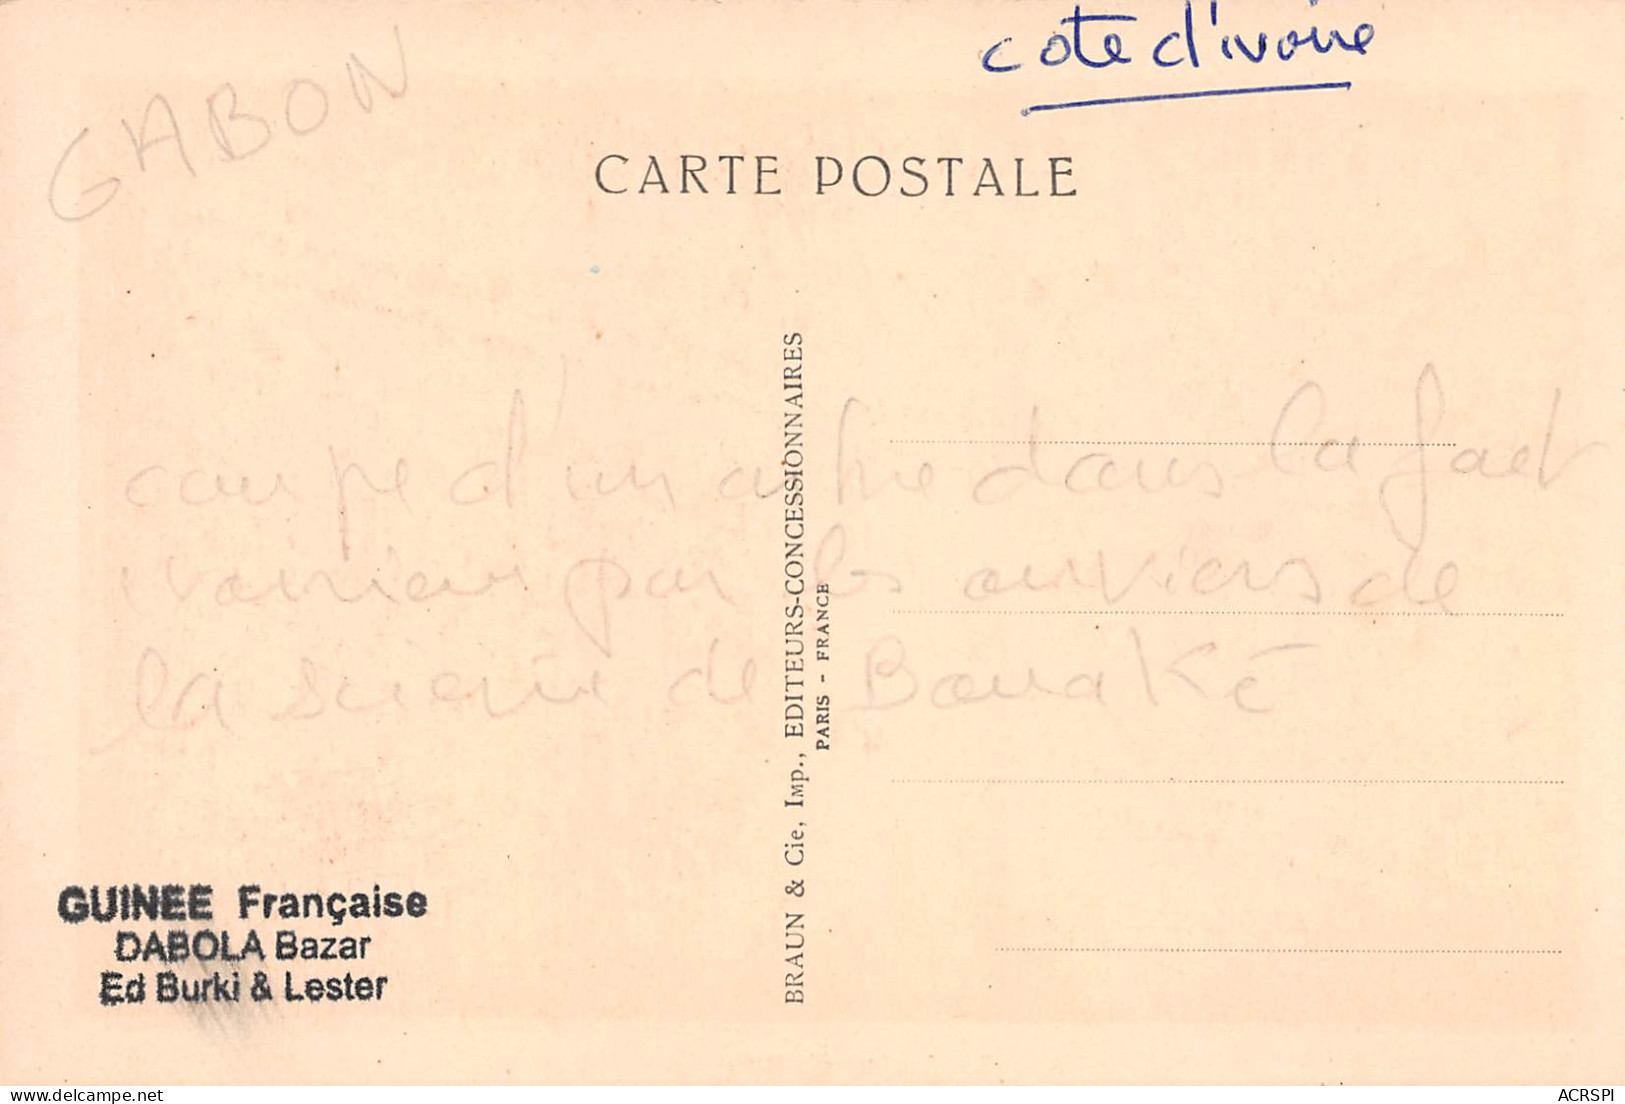 cote d'ivoire
GABON
CARTE POSTALE
coupe d'un arbre dans la foret
ivoirienne par les ouvriers de
la scierie de Bouaké
BRAUN & Cie, Imp., EDITEURS-CONCESSIONNAIRES
PARIS - FRANCE
GUINEE Française
DABOLA Bazar
Ed Burki & Lester
ACRSPI